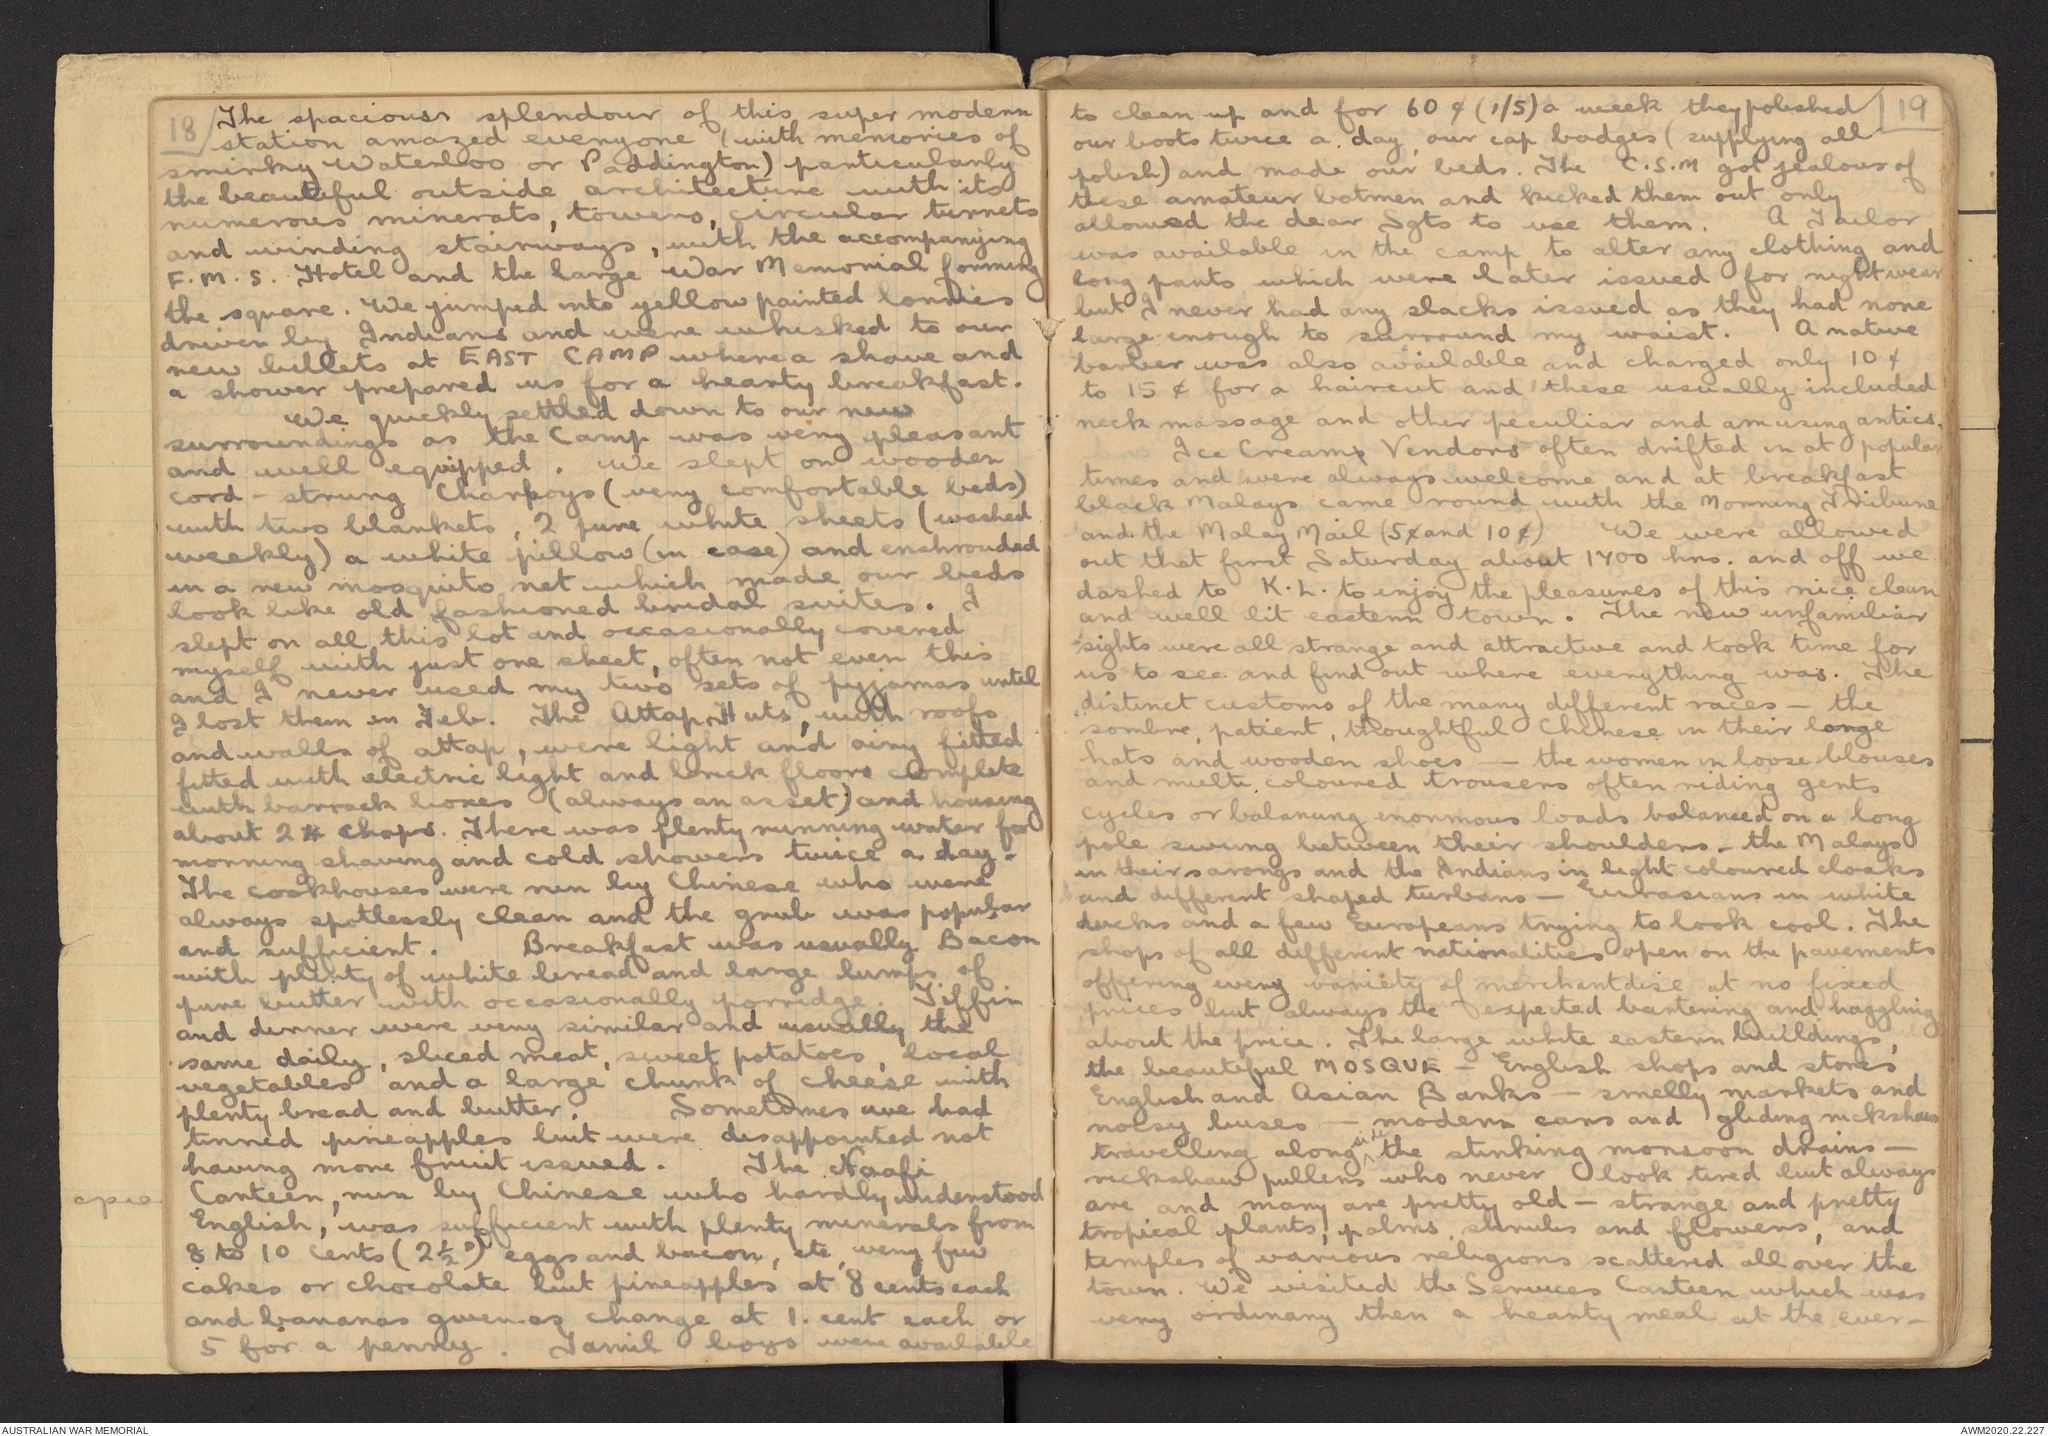 18
The spacious splendour of this super modern
station amazed everyone (with memories of
smirky Waterloo or Paddington) particularly
the beautiful outside architecture with its
numerous minerats, towers, circular turrets
and winding stairways, with the accompanying
F.M.S. Hotel and the large War Memorial forming
the square. We jumped into yellow painted lorries
driven by Indians and were whisked to our
new billets at EAST CAMP where a shave and
a shower prepared us for a hearty breakfast.
We quickly settled down to our new
surroundings as the Camp was very pleasant
and well equipped. We slept on wooden
cord-strung Charpoys (very comfortable beds)
with two blankets, 2 pure white sheets (washed
weekly) a white pillow (in case) and enshrouded
in a new mosquito net which made our beds
look like old fashioned bridal suites. I
slept on all this lot and occasionally covered
myself with just one sheet, often not even this
and I never used my two sets of pyjamas until
I lost them in Feb. The Attap Huts, with roofs
and walls of attap, were light and airy fitted
fitted with electric light and brick floors complete
with barrack boxes (always an asset) and housing
about 24 chaps. There was plenty running water for
morning shaving and cold showers twice a day.
The cookhouses were run by Chinese who were
always spotlessly clean and the grub was popular
and sufficient. Breakfast was usually Bacon
with plenty of white bread and large lumps of
pure butter with occasionally porridge. Tiffin
and dinner were very similar and usually the
same daily, sliced meat, sweet potatoes, local
vegetables and a large chunk of cheese with
plenty bread and butter. Sometimes we had
tinned pineapples but were disappointed not
having more fruit issued. The Naafi
Canteen, run by Chinese who hardly understood
English, was sufficient with plenty minerals from
8 to 10 cents (2½ᴰ) eggs and bacon, etc, very few
cakes or chocolate but pineapples at 8 cents each
and bananas given as change at 1. cent each or
5 for a penny. Tamil boys were available
19
to clean up and for 60 ¢ (1/5) a week they polished
our boots twice a day, our cap badges (supplying all
polish) and made our beds. The C.S.M got jealous of
these amateur batmen and kicked them out only
allowed the dear Sgts to use them. A Tailor
was available in the camp to alter any clothing and
long pants which were later issued for night wear
but I never had any slacks issued as they had none
large enough to surround my waist. A native
barber was also available and charged only 10 ¢
to 15 ¢ for a haircut and these usually included
neck massage and other peculiar and amusing antics.
Ice Creams Vendors often drifted in at popular
times and were always welcome and at breakfast
black Malays came round with the Morning Tribune
and the Malay Mail (5¢ and 10 ¢) We were allowed
out that first Saturday about 1400 hrs. and off we
dashed to K.L. to enjoy the pleasures of this nice clean
and well lit eastern town. The new unfamiliar
sights were all strange and attractive and took time for
us to see and find out where everything was. The
distinct customs of the many different races - the
sombre, patient, thoughtful Chinese in their large
hats and wooden shoes - the women in loose blouses
and multi coloured trousers often riding gents
cycles or balancing enormous loads balanced on a long
pole swung between their shoulders - the Malays
in their sarongs and the Indians in light coloured cloaks
and different shaped turbans - Eurasians in white
ducks and a few Europeans trying to look cool. The
shops of all different nationalities open on the pavements
offering every variety of merchantdise at no fixed
prices but always the expected bartering and haggling
about the price. The large white eastern buildings,
the beautiful MOSQUE - English shops and stores
English and Asian Banks - smelly markets and
noisy buses - modern cars and gliding rickshaws
travelling along side the stinking monsoon drains -
rickshaw pullers who never look tired but always
are and many are pretty old - strange and pretty
tropical plants, palms, shrubs and flowers, and
temples of various religions scattered all over the
town. We visited the Services Canteen which was
very ordinary then a hearty meal at the ever-
AUSTRALIAN WAR MEMORIAL
AWM2020.22.227